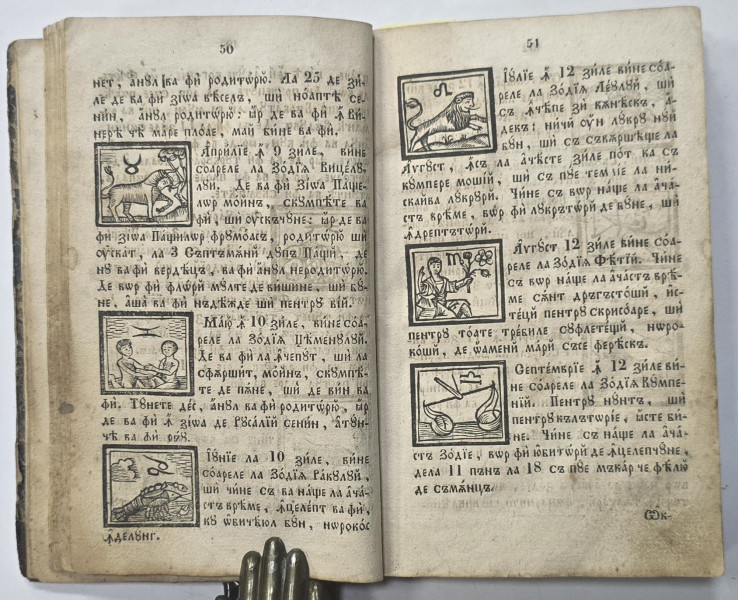 50
нет, а҆нꙋл ва фи҆ родито́рю. Ла 25 де зи́-
ле де ва фи҆ зі́ѡа ве́селъ, ши҆ но́апте се-
ни́н, а҆нꙋл родито́рю: ꙗ҆р де ва фи҆ ꙟ҆ ви-
нерѣ чѣ ма́ре пло́ае, май ви́не ва фи҆.
А҆прі́лїе ꙟ҆ 9 зи́ле, ви́не
со́ареле ла Зо́дїѧ Вице́лꙋ-
лꙋй. Де ва фи҆ зі́ѡа Па́ще-
лѡр мо́йн, скꙋ́мпѣте ва
фи҆, ши҆ ᲂу҆скъчꙋ́не: ꙗ҆р де ва
фи҆ зі́ѡа Па́щилѡр фрꙋмо́асъ, родито́рю ши҆
ᲂу҆ска́т, ла 3 Съптъмѫ́нй дꙋпъ Па́щй, де
нꙋ ва фи҆ верде́цъ, ва фи҆ а҆нꙋл неродито́рю.
Де вѡр фи҆ фло́рй мꙋ́лте де ви́шине, ши҆ бꙋ-
не, а҆ша̀ ва фи҆ нъде́жде ши҆ пе́нтрꙋ вїй.
Ма́ю ꙟ҆ 10 зи́ле, ви́не со́а-
реле ла Зо́дїѧ Џе́менꙋлꙋй.
Де ва фи҆ ла ꙟ҆чепꙋ́т, ши҆ ла
сфѫрши́т, мо́йн, скꙋмпѣ́-
те де пѫ́не, ши҆ де ви́н ва
фи҆. Тꙋ́нете дес, а҆нꙋл ва фи҆ родито́рю, ꙗ҆р
де ва фи҆ ꙟ҆ зі́ѡа де Рꙋса́лїй сени́н, а҆тꙋ́н-
чѣ ва фи҆ рѣꙋ.
І҆ꙋ́нїе ла 10 зи́ле, ви́не
со́ареле ла Зо́дїѧ Ра́кꙋлꙋй,
ши҆ чи́не съ ва на́ще ла а҆ча́-
стъ врѣ́ме, ꙟ҆целе́пт ва фи҆,
кꙋ ѡ҆бичею́л бꙋн, норѡко́с
ꙟ҆делꙋ́нг.
51
І҆ꙋ́лїе ꙟ҆ 12 зи́ле ви́не со́а-
реле ла Зо́дїѧ Ле́ꙋлꙋй, ши҆
съ ꙟ҆чѣпе зїй кѫнѣск, а҆-
декъ: ничй ᲂу҆н лꙋкрꙋ нꙋй
бꙋн, ши҆ съ съвѫрше́ще ла
А҆́ѵгꙋст, ꙟ҆съ ла а҆че́сте зи́ле пот ка съ
кꙋ́мпере моші́й, ши҆ съ пꙋе темелі́е ла ни-
ска́йва лꙋ́крꙋрй. Чи́не съ вѡр на́ще ла а҆ча́-
стъ врѣ́ме, вѡр фи҆ лꙋкръто́рй де бꙋне, ши҆
ꙟ҆дрептъто́рй.
А҆́ѵгꙋст 12 зи́ле ви́не со́а-
реле ла Зо́дїѧ Фе́тїй. Чи́не
съ вѡр на́ще ла а҆ча́стъ врѣ́-
ме сѫ́нт дръгъсто́шй, и҆с-
те́цй пе́нтрꙋ скрисо́аре, ши҆
пе́нтрꙋ то́ате тре́биле сꙋфлете́щй, норѡ-
ко́шй, де ѡ҆а́менй ма́рй съсе фере́скъ.
Септе́мврїе ꙟ҆ 12 зи́ле ви́-
не со́ареле ла Зо́дїѧ Кꙋ́мпе-
ній. Пе́нтрꙋ нꙋ́нтъ, ши҆
пе́нтрꙋ кълъторі́е, ꙗ҆сте би́-
не. Чи́не съ на́ще ла а҆ча́-
стъ Зо́дїе, вѡр фи҆ юбито́рй де ꙟ҆целепчꙋ́не,
дела 11 пѫнъ ла 18 съ пꙋе мъка́р че фе́лю
де съмѫ́нцъ.
Ѡк-